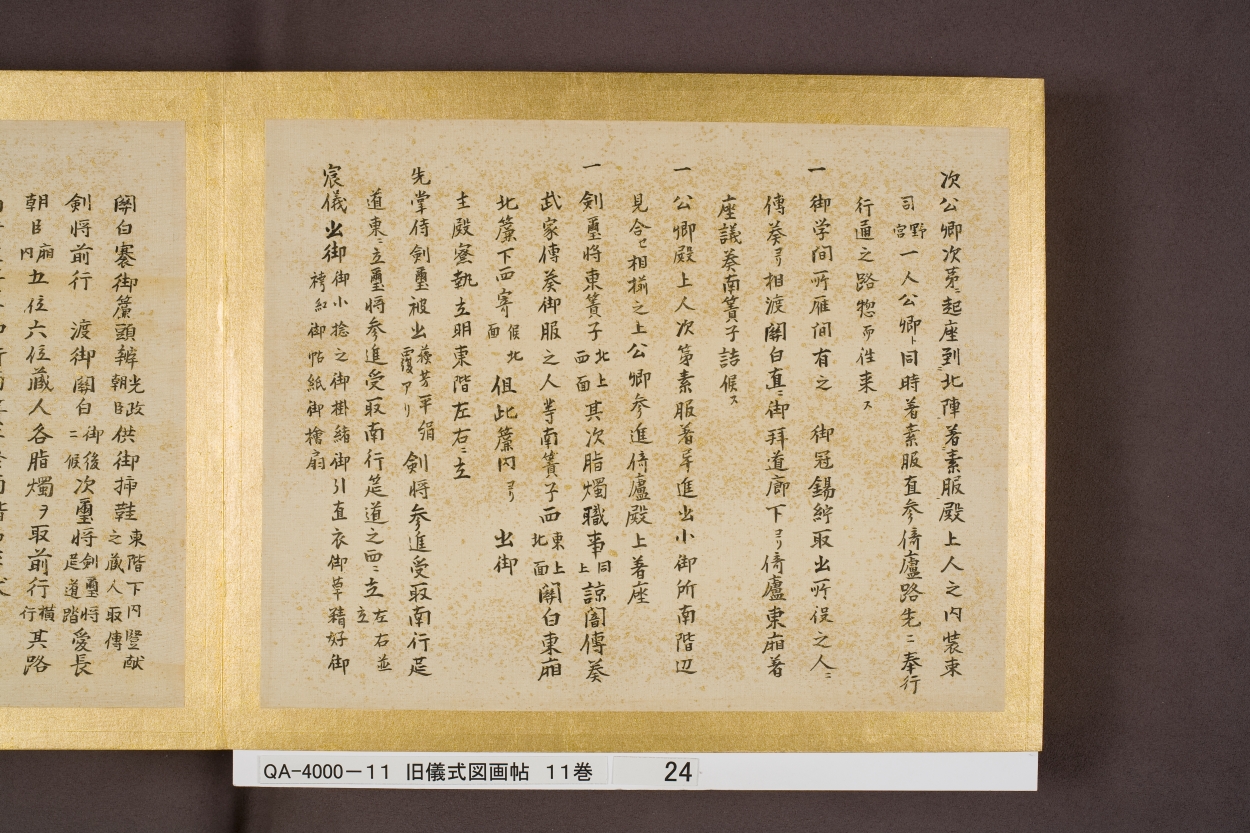 次公卿次第ニ起座到北陣着素服殿上人之内装束
司 野宮 一人公卿ト同時着素服直参倚廬路先ニ奉行
行通之路惣而往来ス
一 御学间所雁间有之 御冠錫紵取出所役之人ニ
傳奏ヨリ相渡關白直ニ御拝道廊下ヨリ倚廬東廂着
座議奏南簀子詰候ス
一 公卿殿上人次第素服着畢進出小御所南階辺
見合セ相揃之上公卿参進倚廬殿上着座
一 劍璽将東簀子 北上西面 其次脂燭職事 同上 諒闇傳奏
武家傳奏御服之人等南簀子西 東上北面 關白東廂
北簾下西寄 候北面 但此簾内ヨリ 出御
主殿寮執立明東階左右ニ立
先掌侍劍璽被出 蘓芳平絹覆アリ 劍将参進受取南行莚
道東ニ立璽将参進受取南行莚道之西ニ立 左右並立
宸儀出御 御小捻之御掛緒御引直衣御草精好御袴紅御帖紙御檜扇
關白褰御簾頭辨 光政朝臣 供御挿鞋 東階下内豎献之蔵人取傳
劍将前行 渡御關白 御後ニ候 次璽将 劍璽将莚道踏 愛長
朝臣 廂内 五位六位蔵人各脂燭ヲ取前行 横行 其路
QA-4000-11 旧儀式図画帖 11巻 24